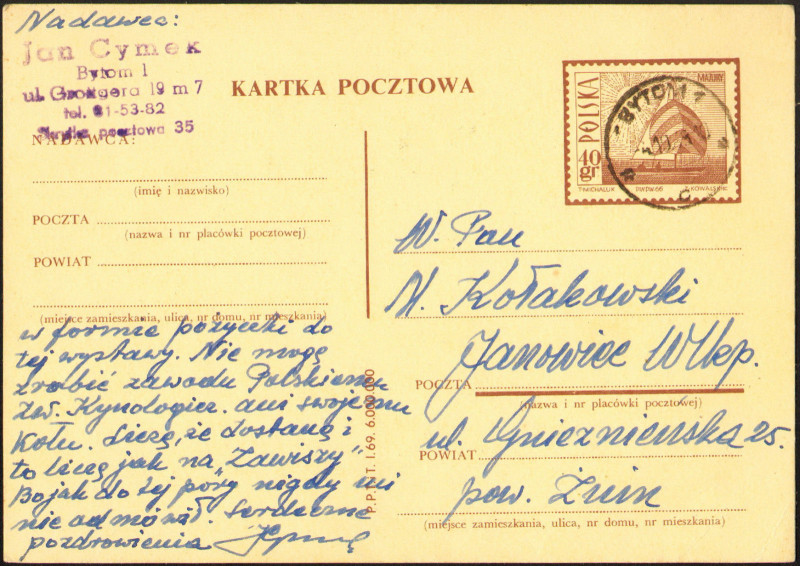 Nadawca:
Jan Cymek
Bytom 1
ul. Grotgera 19 m 7
tel. 81-53-82
Skrytka pocztowa 35
KARTKA POCZTOWA
NADAWCA:
(imię i nazwisko)
POCZTA
(nazwa i nr placówki pocztowej)
POWIAT
(miejsce zamieszkania, ulica, nr domu, nr mieszkania)
w formie pożyczki do
tej wystawy. Nie mogę
zrobić zawodu Polskiemu
Zw. Kynologicz. ani swojemu
Kołu. Liczę, że dostanę i
to liczę jak na „Zawiszy"
Bo jak do tej pory nigdy mi
nie odmówił. Serdeczne
pozdrowienia
P.P.T.T. I.69. 6.000.000
POLSKA
40 gr
MAZURY
T.MICHALUK PWPW-66 KOWALSKI
BYTOM 1
W. Pan
M. Kołakowski
Janowiec Wlkp.
POCZTA
(nazwa i nr placówki pocztowej)
ul. Gnieźnieńska 25.
POWIAT
pow. Żnin
(miejsce zamieszkania, ulica, nr domu, nr mieszkania)